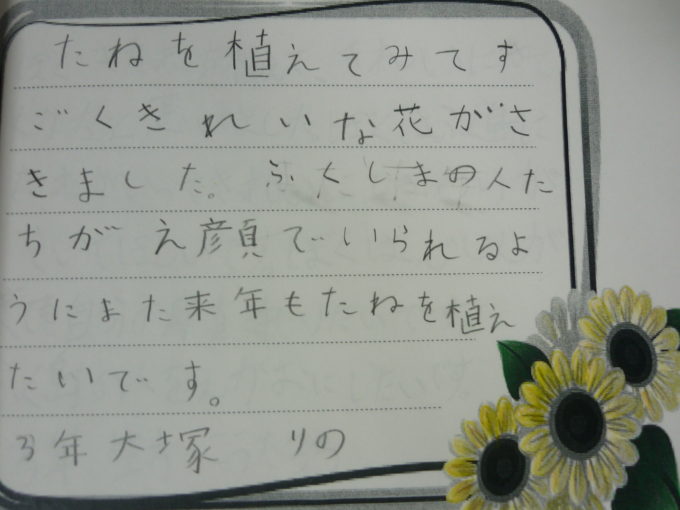 たねを植えてみてす
ごくきれいな花がさ
きました。ふくしまの人た
ちがえ顔でいられるよ
うにまた来年もたねを植え
たいです。
3年大塚 りの